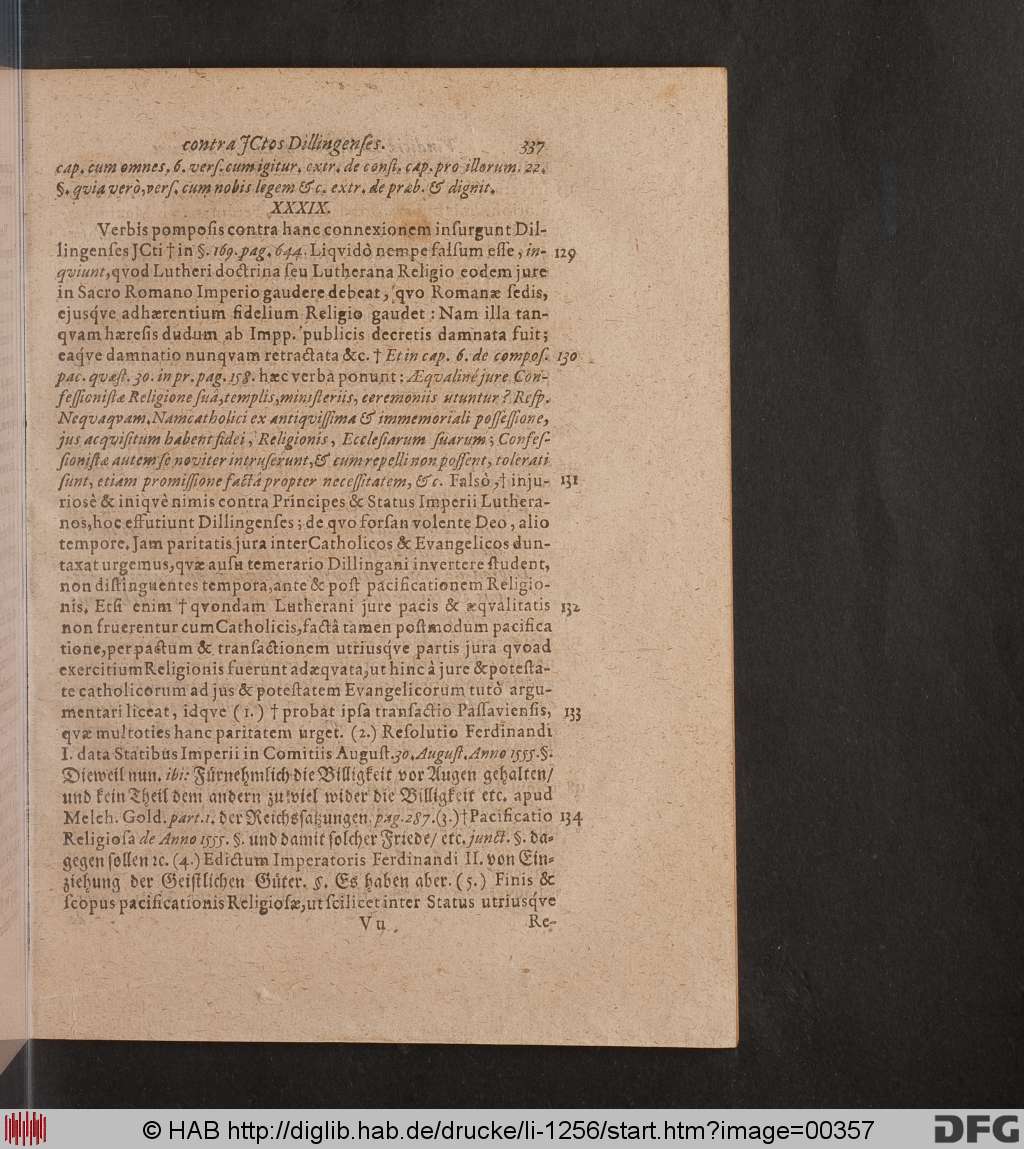 contra JCtos Dillingenſes. 337
cap. cum omnes. 6. verſ. cum igitur. extr. de conſt. cap. pro illorum. 22.
§. quia verò, verſ. cum nobis legem &c. extr. de præb. & dignit.
XXXIX.
Verbis pompoſis contra hanc connexionem inſurgunt Dil-
lingenſes JCti † in §. 169. pag. 644. Liqvidò nempe falſum eſſe, in- 129
qviunt, qvod Lutheri doctrina ſeu Lutherana Religio eodem jure
in Sacro Romano Imperio gaudere debeat, qvo Romanæ ſedis,
ejusq́ve adhærentium fidelium Religio gaudet: Nam illa tan-
qvam hæreſis dudum ab Impp. publicis decretis damnata fuit;
eaq́ve damnatio nunqvam retractata &c. † Et in cap. 6. de compoſ. 130
pac. quæſt. 30. in pr. pag. 158. hæc verba ponunt: Æqvaliné jure Con-
feſſioniſtæ Religione ſuâ, templis, miniſteriis, ceremoniis utuntur? Reſp.
Neqvaqvam. Nam catholici ex antiqviſſima & immemoriali poſſeſſione,
jus acqviſitum habent fidei, Religionis, Eccleſiarum ſuarum; Confeſ-
ſioniſtæ autem ſe noviter intruſerunt, & cum repelli non poſſent, tolerati
ſunt, etiam promiſſione factâ propter neceſſitatem, &c. Falsò, † inju- 131
riosè & iniqvè nimis contra Principes & Status Imperii Luthera-
nos, hoc effutiunt Dillingenſes; de qvo forſan volente Deo, alio
tempore. Jam paritatis jura inter Catholicos & Evangelicos dun-
taxat urgemus, qvæ auſu temerario Dillingani invertere ſtudent,
non diſtinguentes tempora, ante & poſt pacificationem Religio-
nis. Etſi enim † qvondam Lutherani jure pacis & æqvalitatis 132
non fruerentur cum Catholicis, factâ tamen poſtmodum pacifica
tione, per pactum & tranſactionem utriusq́ve partis jura qvoad
exercitium Religionis fuerunt adæqvata, ut hinc â jure & poteſta-
te catholicorum ad jus & poteſtatem Evangelicorum tutò argu-
mentari liceat, idqve (1.) † probat ipſa tranſactio Paſſavienſis, 133
qvæ multoties hanc paritatem urget. (2.) Reſolutio Ferdinandi
I. data Statibus Imperii in Comitiis Auguſt. 30. Auguſt. Anno 1555. §.
Dieweil nun. ibi: Fürnehmlich die Billigkeit vor Augen gehalten/
und kein Theil dem andern zu viel wider die Billigkeit etc. apud
Melch. Gold. part. 1. der Reichsſatzungen. pag. 287. (3.) † Pacificatio 134
Religioſa de Anno 1555. §. und damit ſolcher Friede/ etc. junct. §. da-
gegen ſollen ꝛc. (4.) Edictum Imperatoris Ferdinandi II. von Ein-
ziehung der Geiſtlichen Güter. §. Es haben aber. (5.) Finis &
ſcopus pacificationis Religioſæ, ut ſcilicet inter Status utriusq́ve
Vu Re-
© HAB http://diglib.hab.de/drucke/li-1256/start.htm?image=00357
DFG